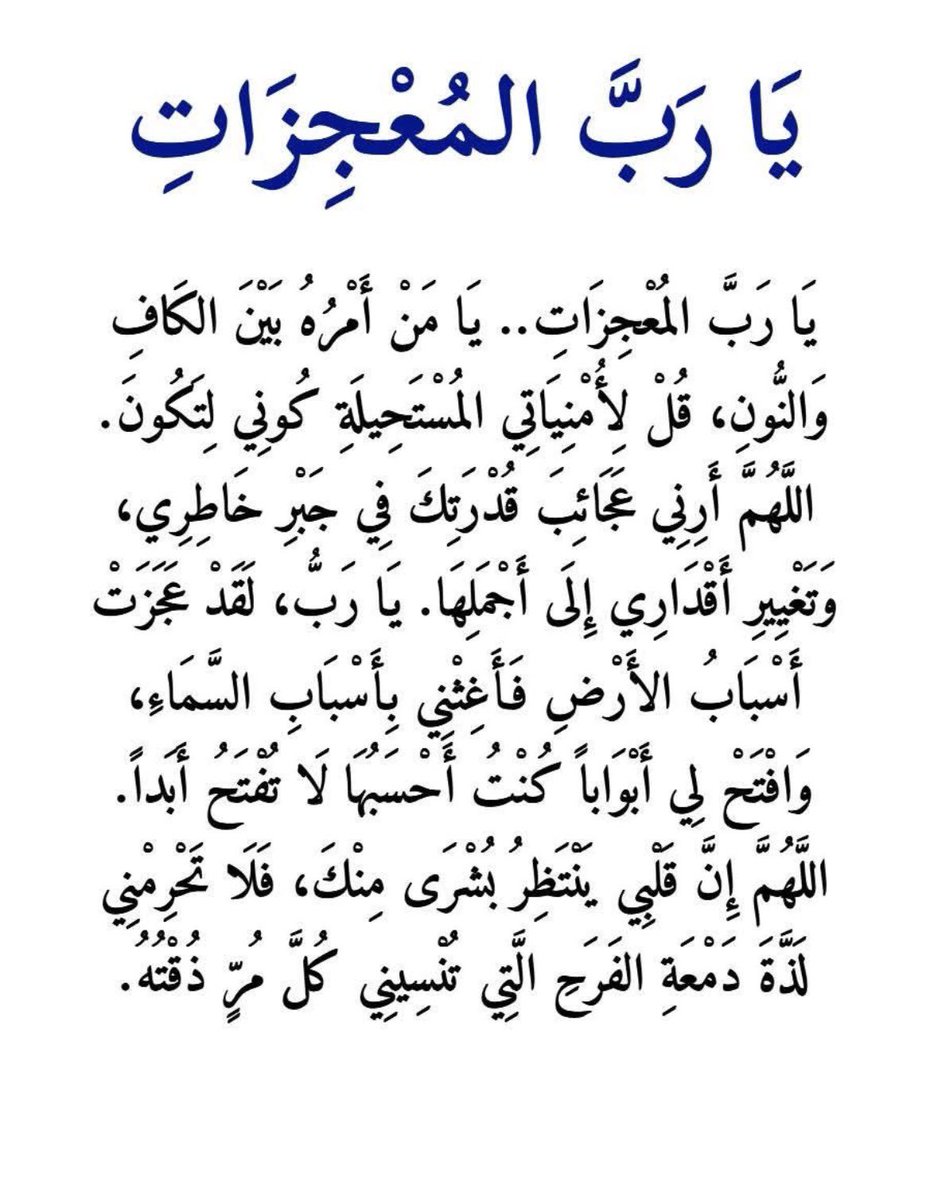 يَا رَبَّ المُعْجِزَاتِ
يَا رَبَّ المُعْجِزَاتِ.. يَا مَنْ أَمْرُهُ بَيْنَ الكَافِ
وَالنُّونِ، قُلْ لِأُمْنِيَاتِي المُسْتَحِيلَةِ كُونِي لِتَكُونَ.
اللَّهُمَّ أَرِنِي عَجَائِبَ قُدْرَتِكَ فِي جَبْرِ خَاطِرِي،
وَتَغْيِيرِ أَقْدَارِي إِلَى أَجْمَلِهَا. يَا رَبُّ، لَقَدْ عَجَزَتْ
أَسْبَابُ الأَرْضِ فَأَغِثْنِي بِأَسْبَابِ السَّمَاءِ،
وَافْتَحْ لِي أَبْوَاباً كُنْتُ أَحْسَبُهَا لَا تُفْتَحُ أَبَداً.
اللَّهُمَّ إِنَّ قَلْبِي يَنْتَظِرُ بُشْرَى مِنْكَ، فَلَا تَحْرِمْنِي
لَذَّةَ دَمْعَةِ الفَرَحِ الَّتِي تُنْسِينِي كُلَّ مُرٍّ ذُقْتُهُ.